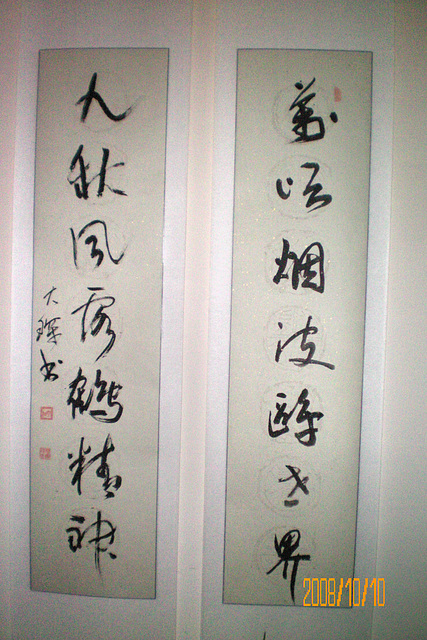 萬頃烟波鷗世界
九秋風露鶴精神
大 书
2008/10/10